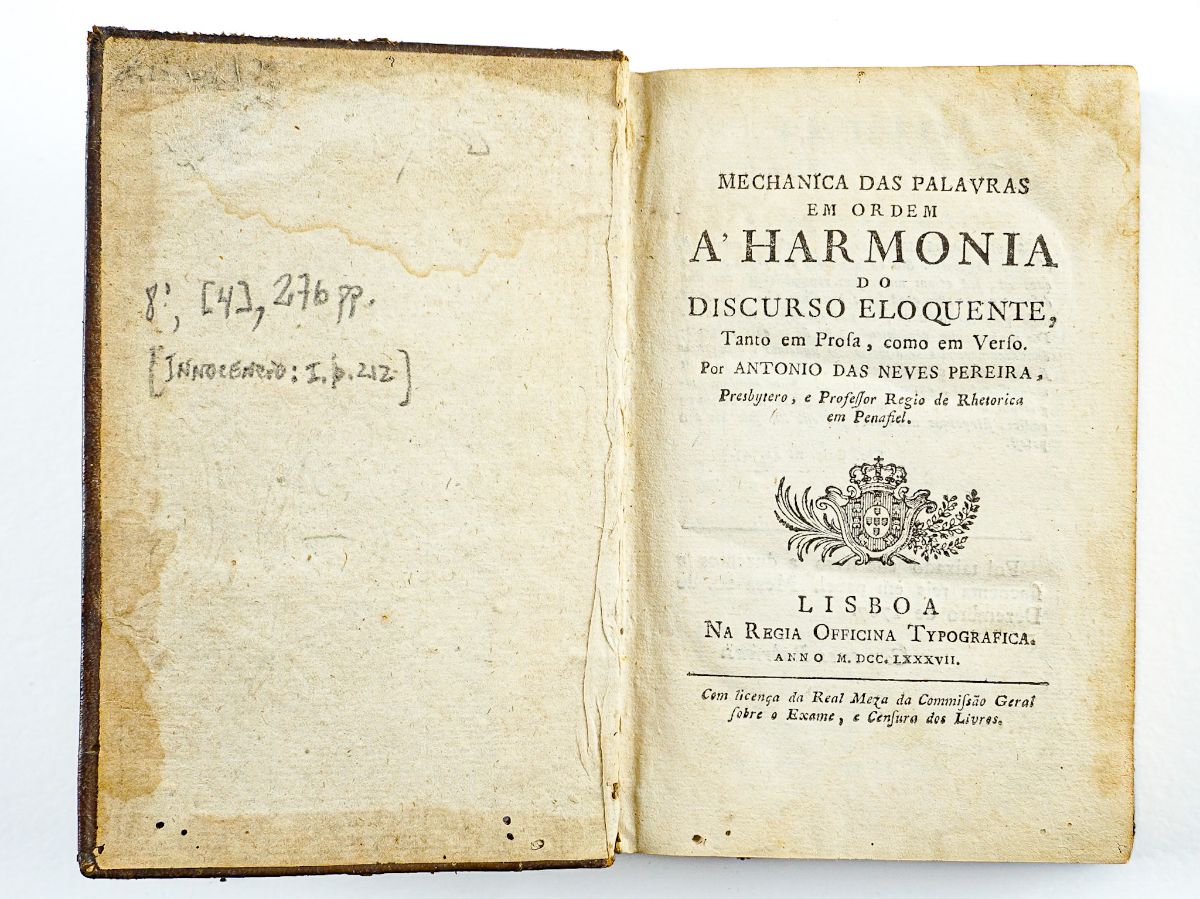 8º, [4], 276 pp.
[INNOCENCIO: I. p. 212]
MECHANICA DAS PALAVRAS
EM ORDEM
A' HARMONIA
DO
DISCURSO ELOQUENTE,
Tanto em Proſa, como em Verſo.
Por ANTONIO DAS NEVES PEREIRA,
Presbytero, e Profeſſor Regio de Rhetorica
em Penafiel.
LISBOA
NA REGIA OFFICINA TYPOGRAFICA.
ANNO M. DCC. LXXXVII.
Com licença da Real Meza da Commiſsão Geral
ſobre o Exame, e Cenſura dos Livros.